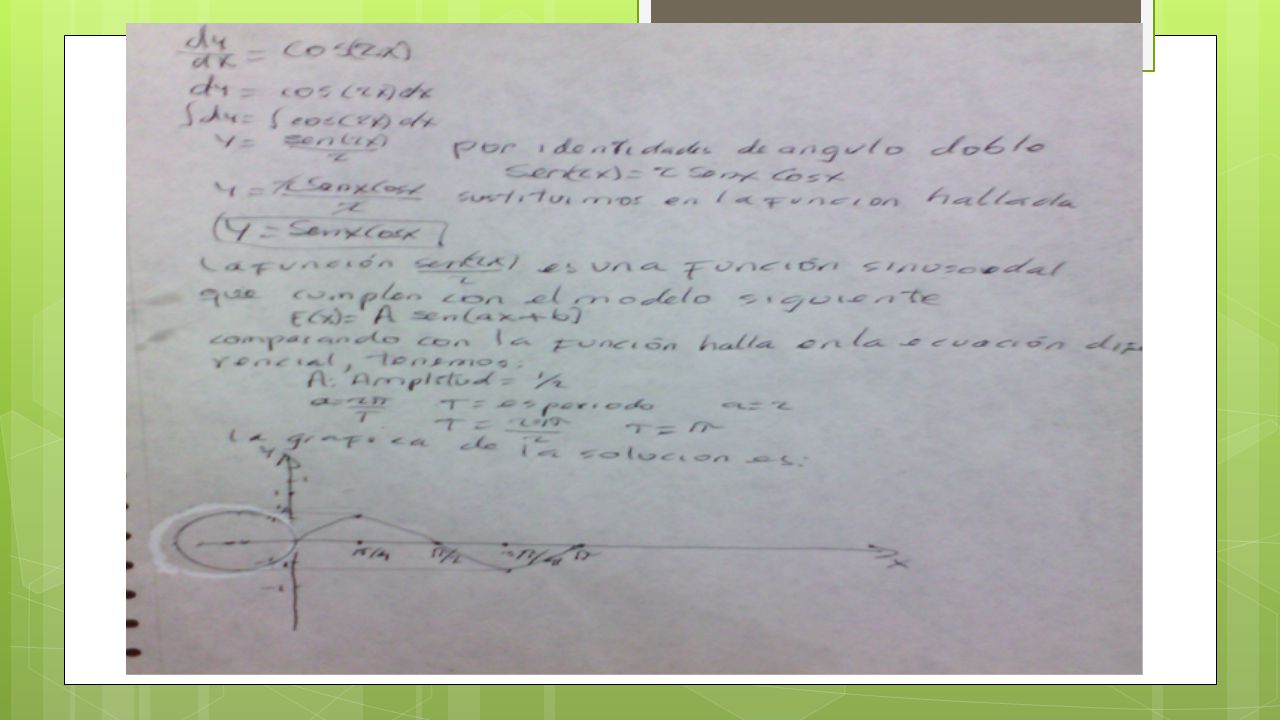 dy/dx = cos(2x)
dy = cos(2x)dx
∫dy = ∫cos(2x)dx
y = sen(2x)/2 por identidades de angulo doble
sen(2x) = 2 senx cosx
y = 2 senxcosx/2 sustituimos en la función hallada
y = senxcosx
La función sen(2x)/2 es una función sinusoidal
que cumplen con el modelo siguiente
F(x) = A sen(ax+b)
comparando con la función halla en la ecuación dife
rencial, tenemos:
A: Amplitud = 1/2
a = 2π/T T = es periodo a = 2
T = 2π/2 T = π
La grafica de la solucion es:
y
π/4 π/2 3π/4 π
x